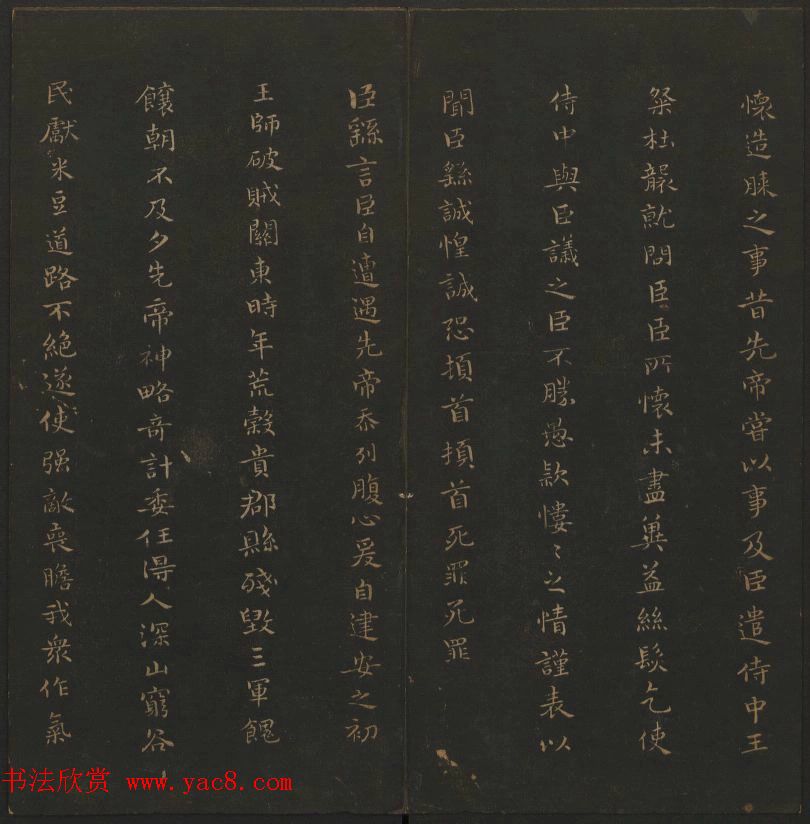 懷造膝之事昔先帝嘗以事及臣遣侍中王
粲杜襲就問臣臣所懷未盡冀益絲髮乞使
侍中與臣議之臣不勝愚款慺慺之情謹表以
聞臣繇誠惶誠恐頓首頓首死罪死罪
臣繇言臣自遭遇先帝忝列腹心爰自建安之初
王師破賊關東時年荒穀貴郡縣殘毀三軍餽
饟朝不及夕先帝神略奇計委任得人深山窮谷
民獻米豆道路不絕遂使强敵喪膽我衆作氣
书法欣赏 www.yac8.com